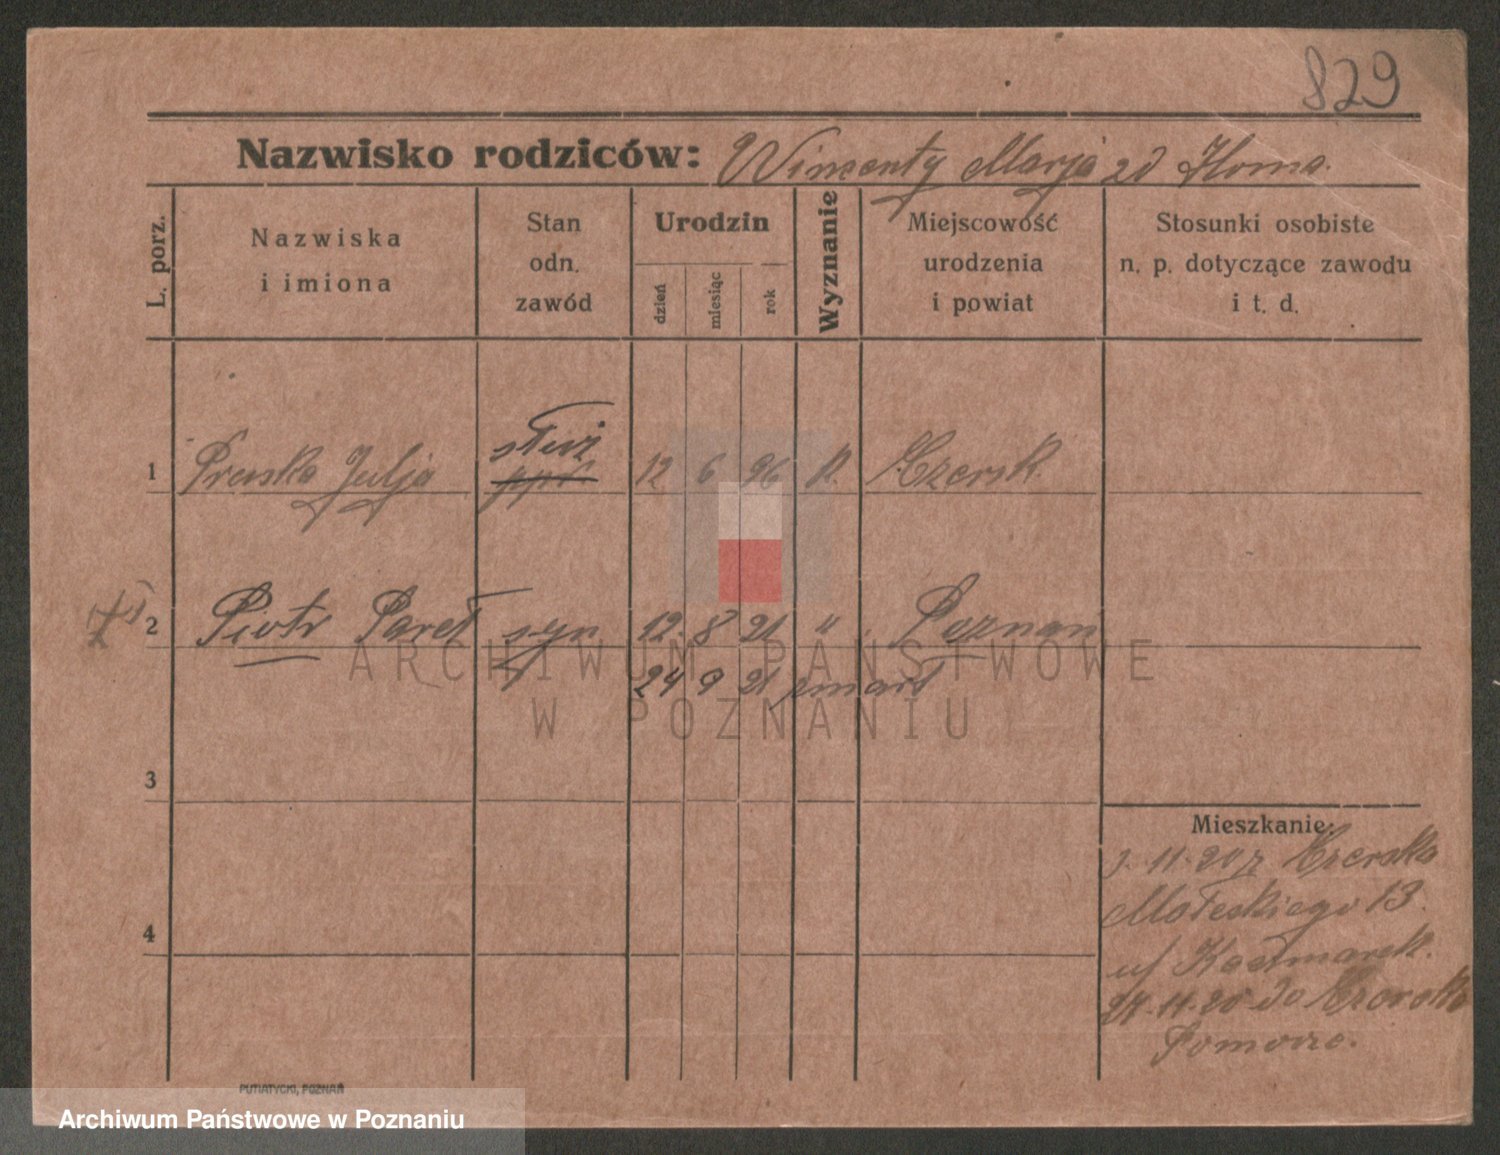 829
Nazwisko rodziców: Wincenty Marja zd Homa.
L. porz.
Nazwiska
i imiona
Stan
odn.
zawód
Urodzin
dzień
miesiąc
rok
Wyznanie
Miejscowość
urodzenia
i powiat
Stosunki osobiste
n. p. dotyczące zawodu
i t. d.
służ
1 Pruska Julja ppr 12 6 96 K. Czersk.
2 Piotr Paweł syn 12. 8 21 " Poznan
24 9 21 zmarł
3
4
Mieszkanie:
3. 11. 20 z Czerska
Małeckiego 13.
u/ Kaczmarek.
27. 11. 20 do Czerska
Pomorze.
PUTIATYCKI, POZNAŃ
ARCHIWUM PAŃSTWOWE
W POZNANIU
Archiwum Państwowe w Poznaniu